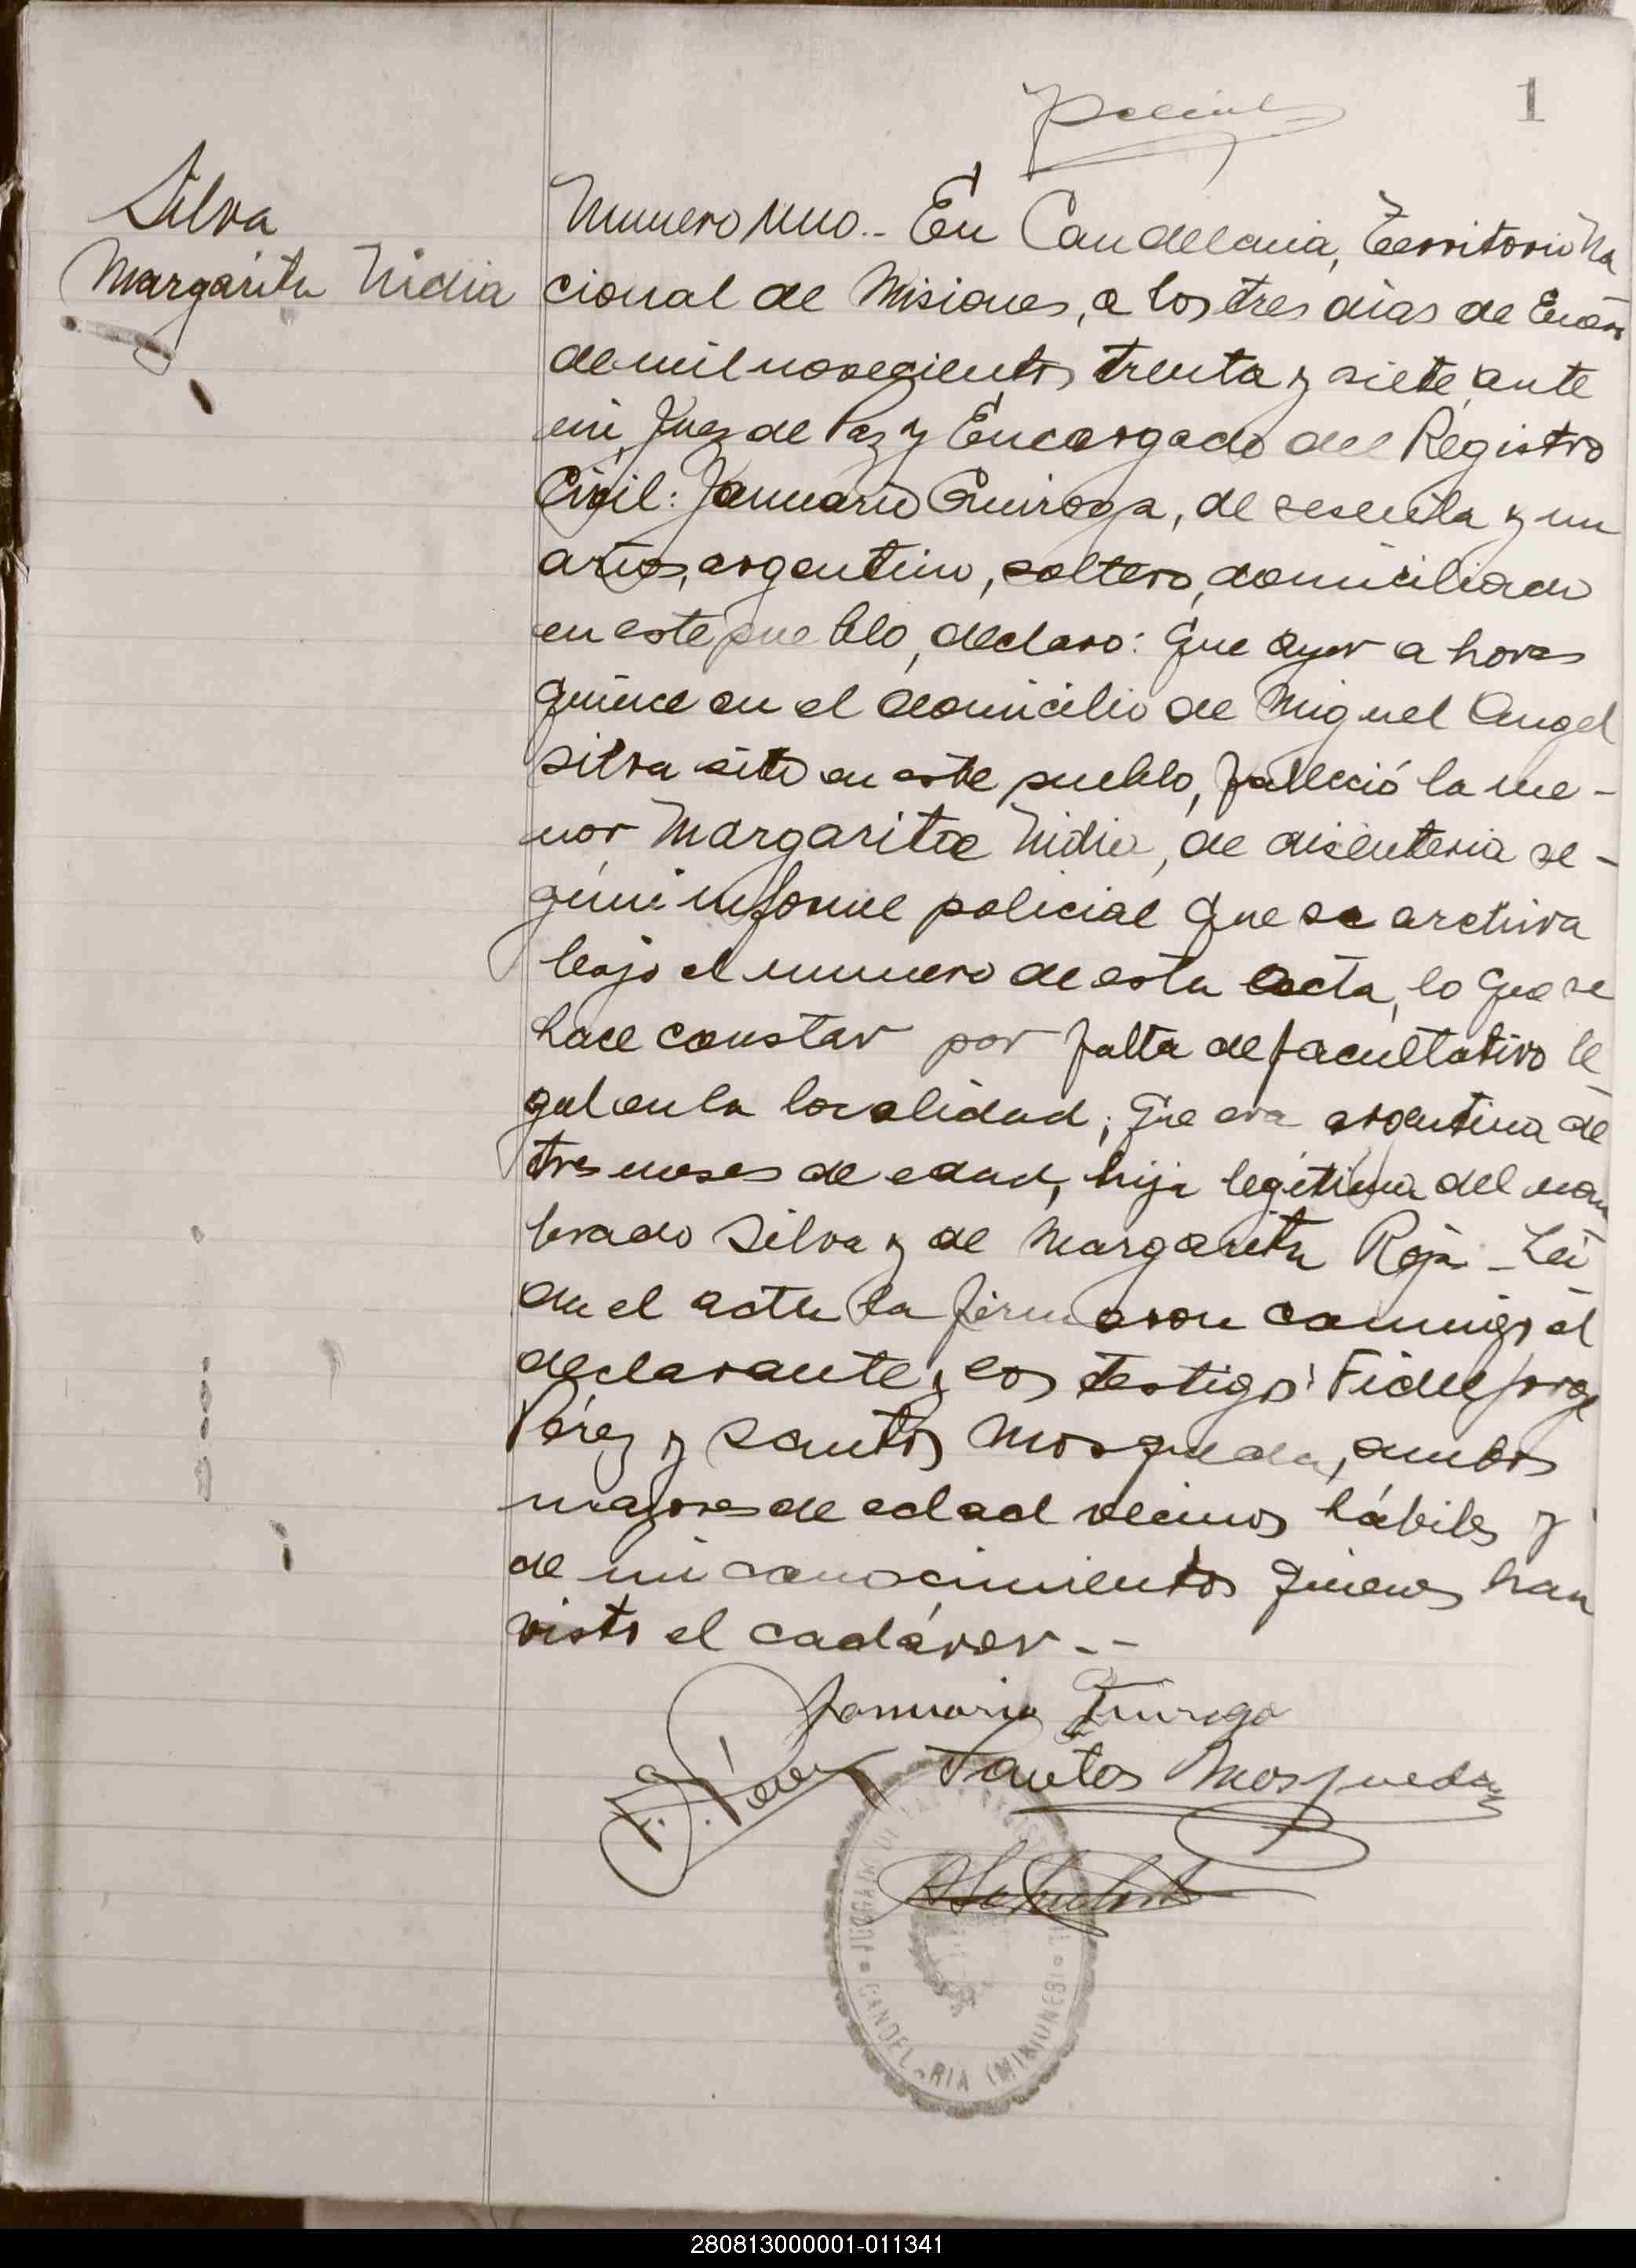 Policial
1
Silva
Margarita Nidia
Numero uno.- En Candelaria, Territorio Na
cional de Misiones, a los tres dias de Enero
de mil novecientos treinta y siete, ante
mi, Juez de Paz y Encargado del Registro
Civil: Januario Quiroga, de sesenta y un
años, argentino, soltero, domiciliado
en este pueblo, declaro: Que ayer a horas
quince en el domicilio de Miguel Angel
Silva sito en este pueblo, falleció la me-
nor Margarita Nidia, de disenteria se-
gún informe policial que se archiva
bajo el numero de esta acta, lo que se
hace constar por falta de facultativo le-
gal en la localidad; Que era argentina de
tres meses de edad, hija legítima del nom
brado Silva y de Margarita Roja - Leí
da el acta la firmaron conmigo el
declarante y los testigos: Fidel Jorge
Pérez y Santos Mosqueda, ambos
mayores de edad vecinos hábiles y
de mi conocimientos quienes han
visto el cadáver.--
Januario Quiroga
F. J. Pérez
Santos Mosqueda
JUZGADO DE PAZ Y REGISTRO CIVIL
CANDELARIA (MISIONES)
280813000001-011341